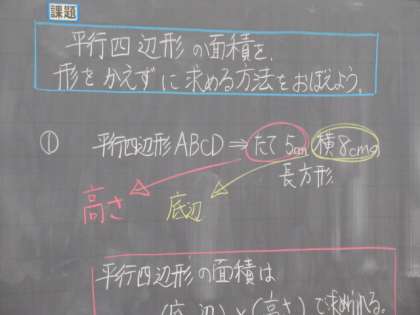 課題
平行四辺形の面積を、
形をかえずに求める方法をおぼえよう。
① 平行四辺形ABCD⇒たて5cm 横8cmの
長方形
高さ 底辺
平行四辺形の面積は
(底辺)×(高さ)で求められる。